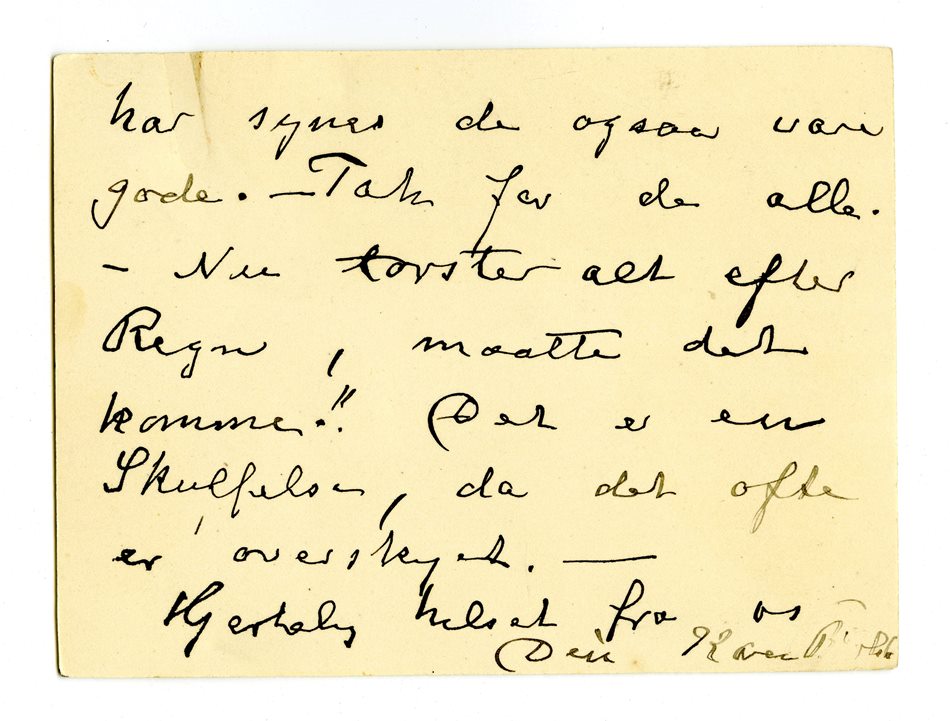 har synes de ogsaa vare
gode. — Tak for de alle.
– Nu torster alt efter
Regn, maatte det
komme!! Det er en
Skuffelse, da det ofte
er overskyet. —
Hjertelig hilset fra os –
Din Karen